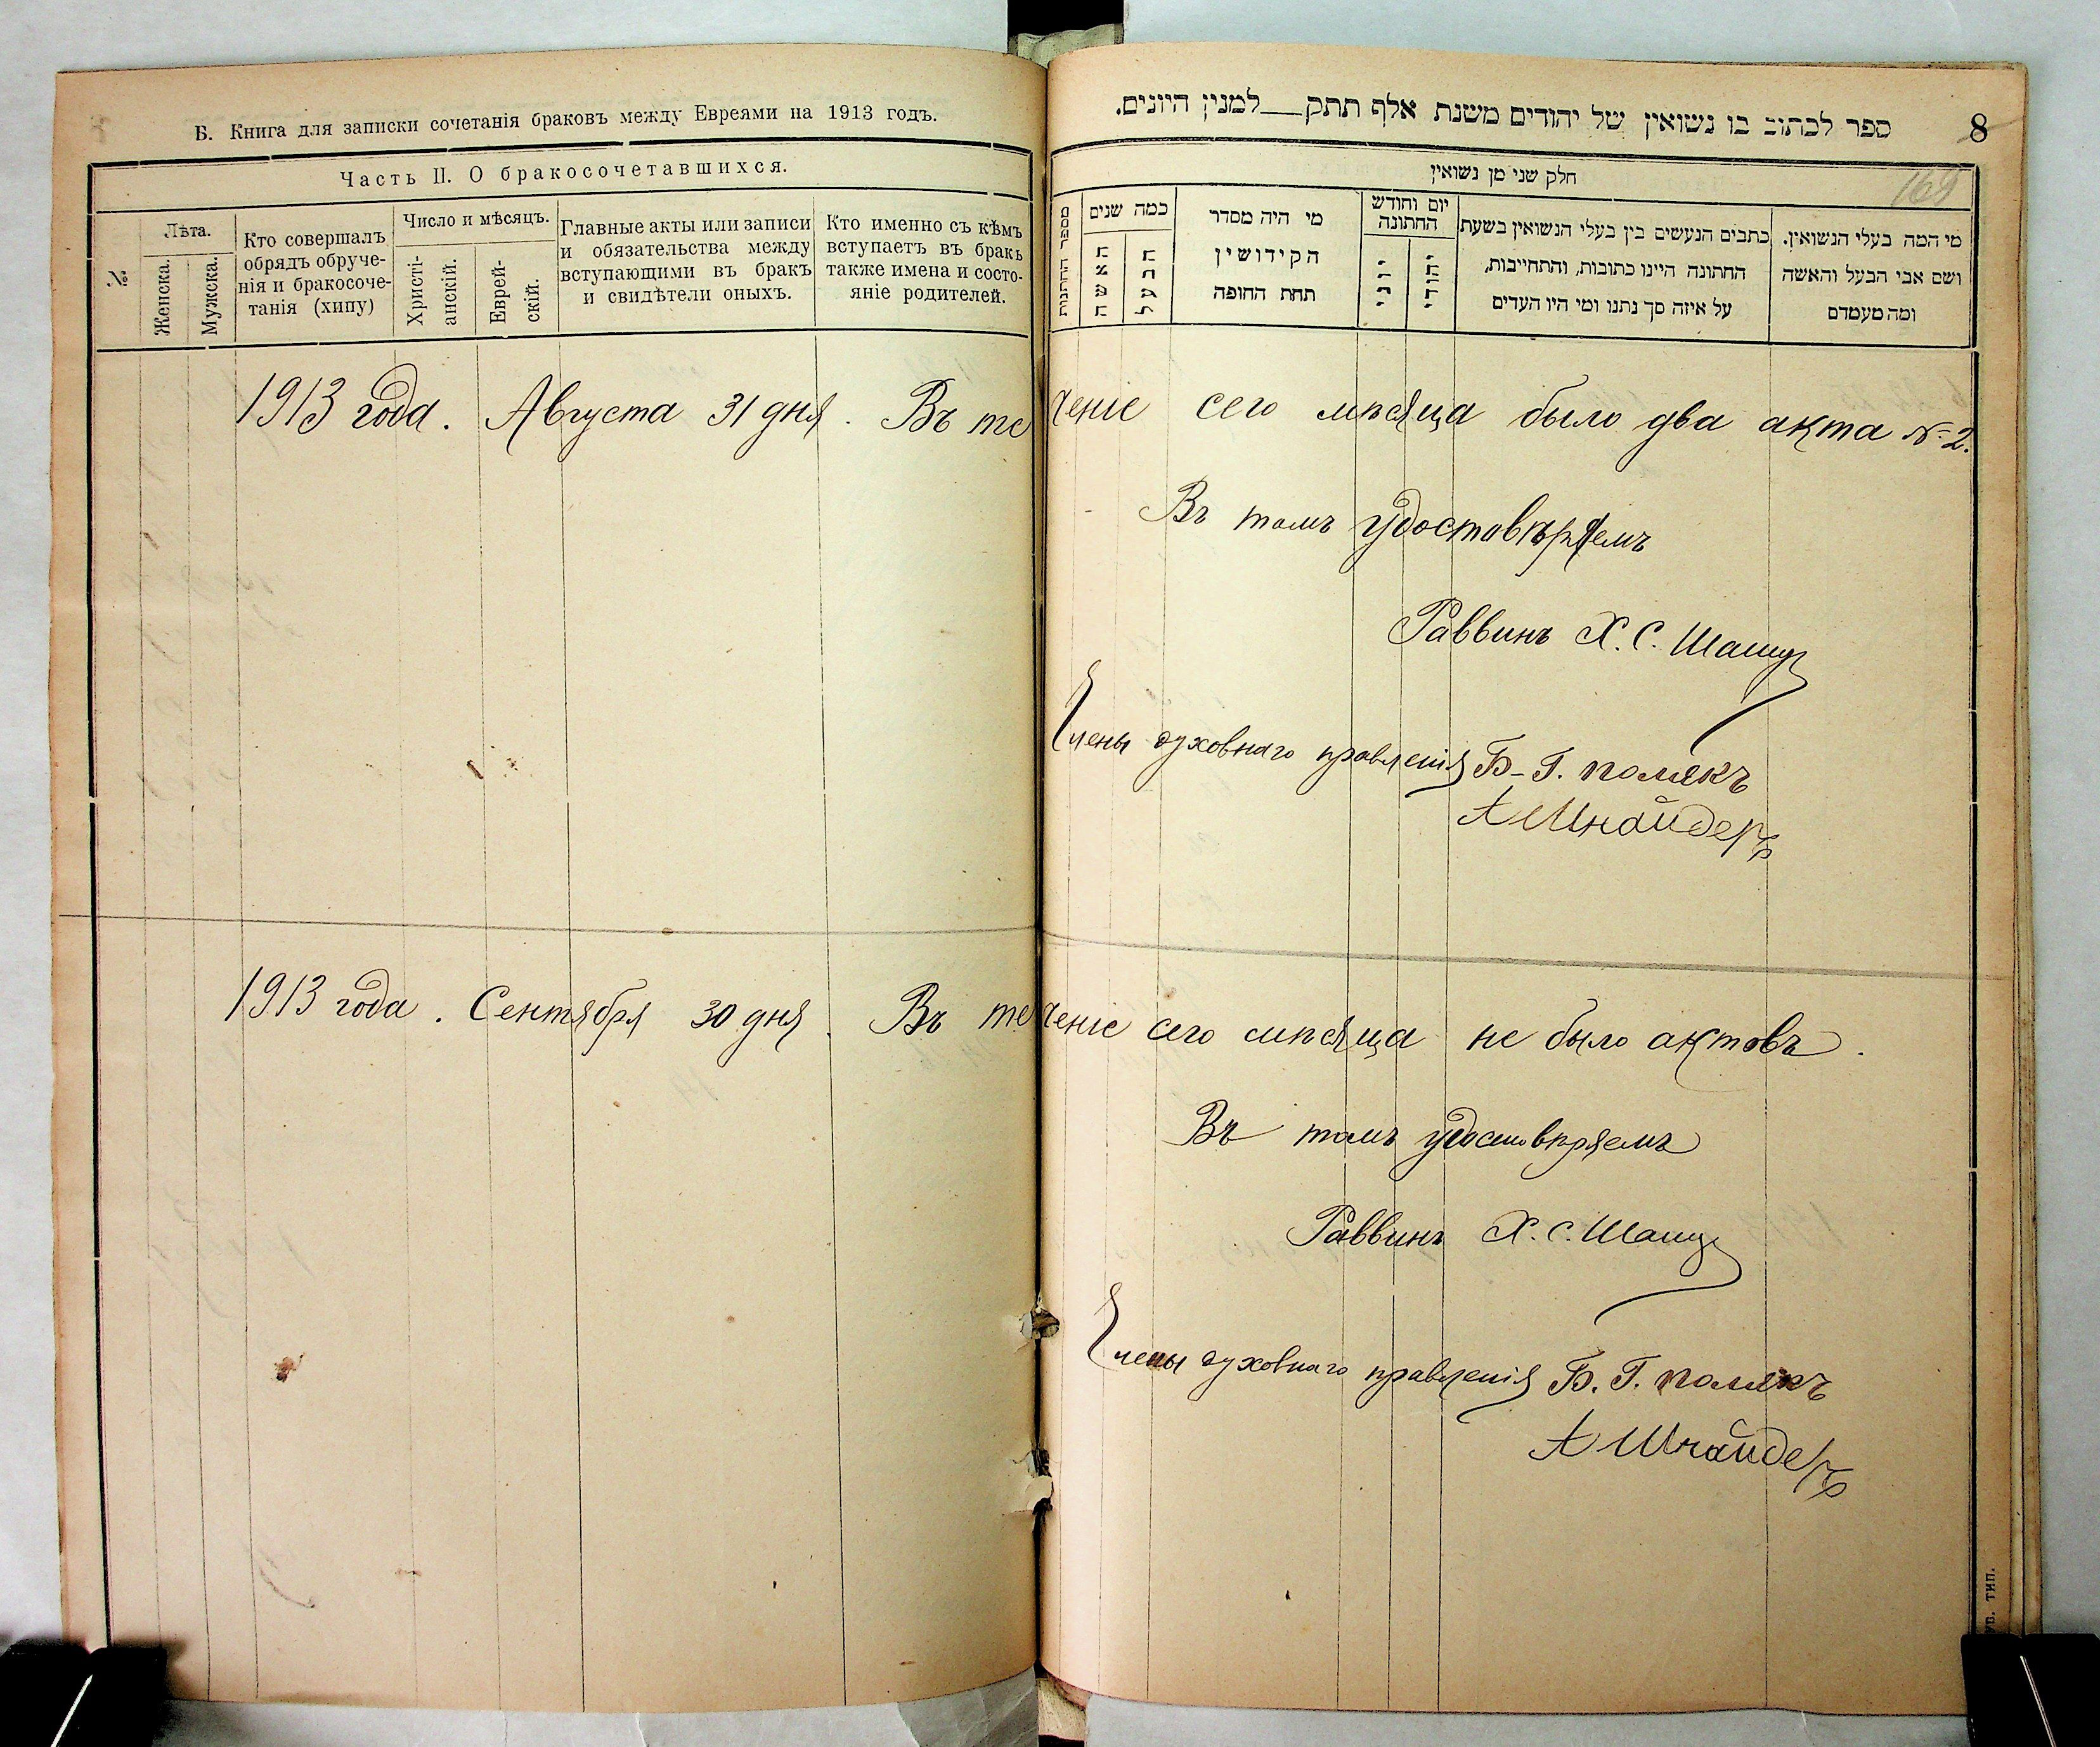 Б. Книга для записки сочетанія браковъ между Евреями на 1913 годъ.
Часть II. О бракосочетавшихся.
№
Лѣта.
Женска.
Мужска.
Кто совершалъ
обрядъ обруче-
нія и бракосоче-
танія (хипу)
Число и мѣсяцъ.
Христі-
анскій.
Еврей-
скій.
Главные акты или записи
и обязательства между
вступающими въ бракъ
и свидѣтели оныхъ.
Кто именно съ кѣмъ
вступаетъ въ бракъ
также имена и состо-
яніе родителей.
ספר לכתוב בו נשואין של יהודים משנת אלף תתק___למנין היונים.
8
169
חלק שני מן נשואין
מספר החתונות
כמה שנים
האשה
הבעל
מי היה מסדר
הקידושין
תחת החופה
יום וחודש
החתונה
יוני
יהודי
כתבים הנעשים בין בעלי הנשואין בשעת
החתונה היינו כתובות, והתחייבות,
על איזה סך נתנו ומי היו העדים
מי המה בעלי הנשואין.
ושם אבי הבעל והאשה
ומה מעמדם
1913 года. Августа 31 дня. Въ теченіе сего мѣсяца было два акта № 2.
Въ томъ удостовѣряемъ
Раввинъ Х. С.
Члены духовнаго правленія Б-Г. Полякъ
А Шнайдеръ
1913 года. Сентября 30 дня. Въ теченіе сего мѣсяца не было актовъ.
Въ томъ удостовѣряемъ
Раввинъ Х. С.
Члены духовнаго правленія Б. Г. Полякъ
А Шнайдеръ
тип.